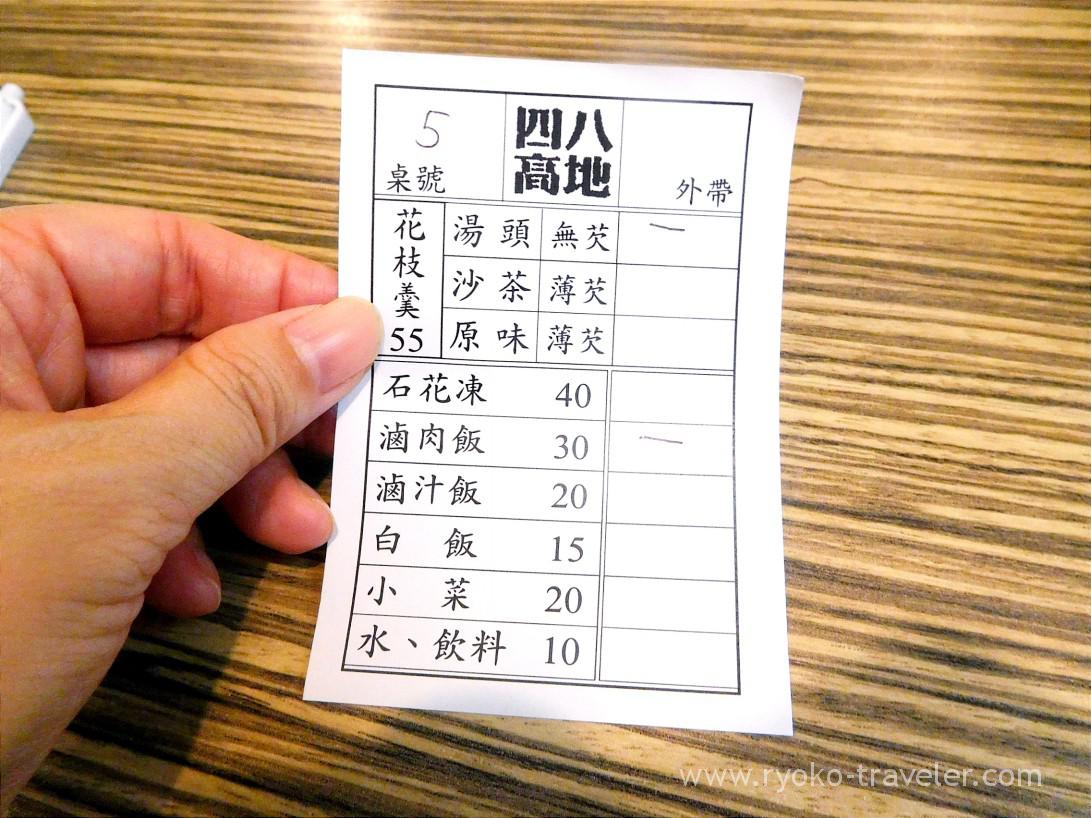 5
桌號
四八
高地
外帶
花枝羹
55
湯頭 無芡 一
沙茶 薄芡
原味 薄芡
石花凍 40
滷肉飯 30 一
滷汁飯 20
白飯 15
小菜 20
水、飲料 10
www.ryoko-traveler.com